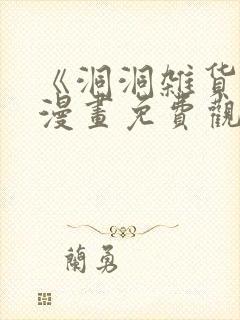 《洞洞雑货
漫畫免費觀
蘭勇